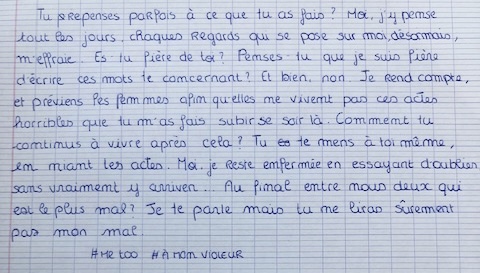 Tu repenses parfois à ce que tu as fais ? Moi, j'y pense
tout les jours, chaques regards qui se pose sur moi, désormais,
m'effraie. Es-tu fière de toi ? Penses-tu que je suis fière
d'écrire ces mots te concernant ? Et bien, non. Je rend compte,
et préviens les femmes afin qu'elles ne vivent pas ces actes
horribles que tu m'as fais subir se soir là. Comment tu
continus à vivre après cela ? Tu te mens à toi même,
en niant les actes. Moi, je reste enfermée en essayant d'oublier
sans vraiment y arriver... Au final entre nous deux qui
est le plus mal ? Je te parle mais tu me liras sûrement
pas mon mal.
#METOO #ÀMONVIOLEUR